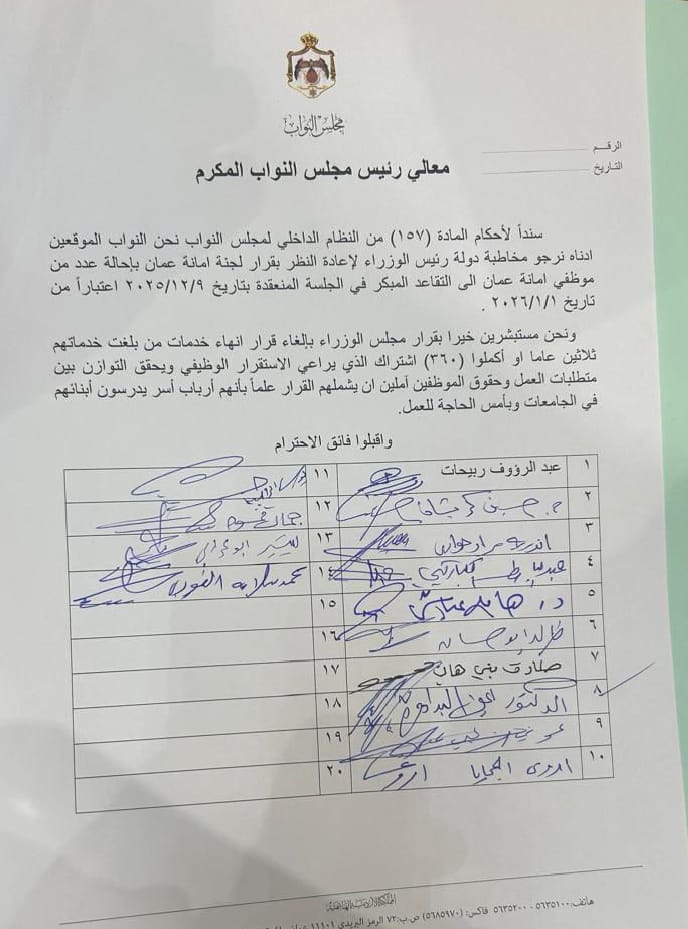 مجلس النواب
الرقـم
التاريخ
معالي رئيس مجلس النواب المكرم
سنداً لأحكام المادة (١٥٧) من النظام الداخلي لمجلس النواب نحن النواب الموقعين
ادناه نرجو مخاطبة دولة رئيس الوزراء لإعادة النظر بقرار لجنة امانة عمان بإحالة عدد من
موظفي امانة عمان الى التقاعد المبكر في الجلسة المنعقدة بتاريخ ٢٠٢٥/١٢/٩ اعتباراً من
تاريخ ٢٠٢٦/١/١ .
ونحن مستبشرين خيرا بقرار مجلس الوزراء بإلغاء قرار انهاء خدمات من بلغت خدماتهم
ثلاثين عاما او أكملوا (٣٦٠) اشتراك الذي يراعي الاستقرار الوظيفي ويحقق التوازن بين
متطلبات العمل وحقوق الموظفين آملين ان يشملهم القرار علماً بأنهم أرباب أسر يدرسون أبنائهم
في الجامعات وبأمس الحاجة للعمل.
واقبلوا فائق الاحترام
١ عبد الرؤوف ربيحات ١١
٢ ١٢
٣ ١٣
٤ ١٤ محمد سلامه الغويري
٥ ١٥
٦ ١٦
٧ صداح بني هاني ١٧
٨ الدكتور ١٨
٩ ١٩
١٠ اروى الحجايا ٢٠
المملكة الأردنية الهاشمية
هاتف: ٥٦٣٥١٠٠ - ٥٦٣٥٢٠٠ فاكس: (٥٦٨٥٩٧٠) ص.ب: ٧٢ الرمز البريدي ١١١٠١